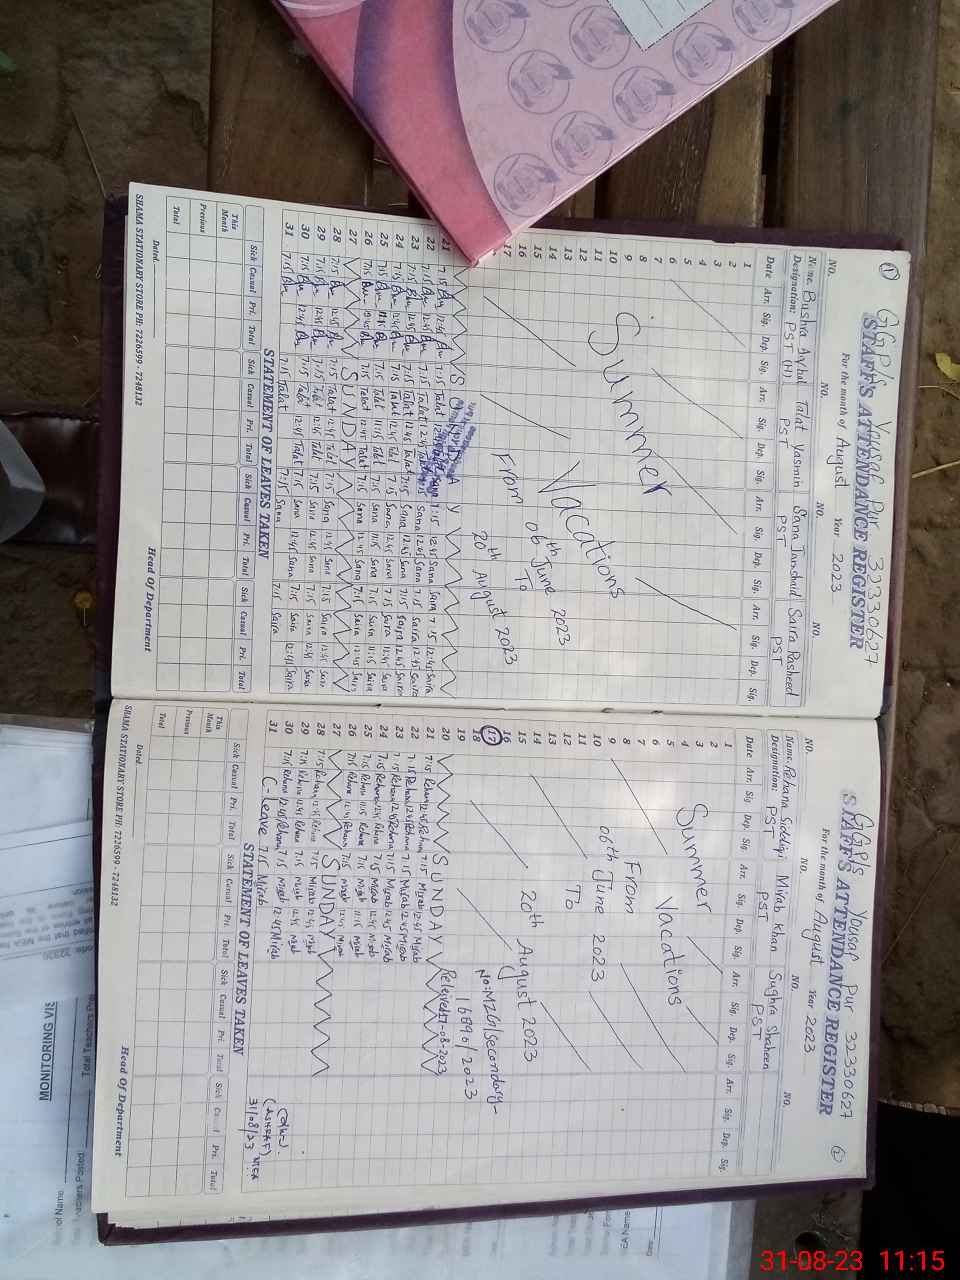 ①
G.G.P/S Yousaf Pur 32330627
STAFF'S ATTENDANCE REGISTER
For the month of August Year 2023
NO. NO. NO. NO.
Name. Bushra Talat Yasmin Sana Junshaid Saira Rasheed
Designation: PST (H) PST PST PST
Date Arr. Sig. Dep. Sig. Arr. Sig. Dep. Sig. Arr. Sig. Dep. Sig. Arr. Sig. Dep. Sig.
1
2
3
4
5
6
7
8
9
10
11
12
13
14
15
16
17
Summer
Vacations
From 06th June 2023
To
20th August 2023
SUNDAY
21 7:15 12:45 7:15 Talat 7:15 12:45 Sana 7:15 12:45 Saira
22 7:15 12:45 7:15 Talat 12:45 Sana 12:45 Sana Saira 12:45 Saira
23 7:15 12:45 7:15 Talat 12:45 Talat 7:15 Sana 12:45 Sana 7:15 Saira 12:45 Saira
24 7:15 12:45 7:15 Talat 12:45 Talat 7:15 Sana 12:45 Sana 7:15 Saira 12:45 Saira
25 7:15 11:15 7:15 Talat 11:15 Talat 7:15 Sana 11:15 Sana 7:15 Saira 11:15 Saira
26 7:15 12:45 7:15 Talat 12:45 Talat 7:15 Sana 12:45 Sana 7:15 Saira 12:45 Saira
27 SUNDAY
28 7:15 12:45 7:15 Talat 12:45 Talat 7:15 Sana 12:45 Sana 7:15 Saira 12:45 Saira
29 7:15 12:45 7:15 Talat 12:45 Talat 7:15 Sana 12:45 Sana 7:15 Saira 12:45 Saira
30 7:15 12:45 7:15 Talat 12:45 Talat 7:15 Sana 12:45 Sana 7:15 Saira 12:45 Saira
31 7:15 7:15 Talat 7:15 Sana 7:15 Saira
STATEMENT OF LEAVES TAKEN
Sick Casual Pri. Total Sick Casual Pri. Total Sick Casual Pri. Total Sick Casual Pri. Total
This Month
Previous
Total
Dated. Head Of Department
SHAMA STATIONARY STORE PH: 7226599 - 7248132
②
G.G.P/S Yousaf Pur 32330627
STAFF'S ATTENDANCE REGISTER
For the month of August Year 2023
NO. NO. NO. NO.
Name. Rehana Siddiqi Mirab Khan Sughra Shaheen
Designation: PST PST PST
Date Arr. Sig. Dep. Sig. Arr. Sig. Dep. Sig. Arr. Sig. Dep. Sig. Arr. Sig. Dep. Sig.
1
2
3
4
5
6
7
8
9
10
11
12
13
14
15
16
17
18
19
Summer Vacations
From
06th June 2023
To
20th August 2023
No: MZG/Secondary-
16890/2023
Releived 17-08-2023
20 SUNDAY
21 7:15 Rehana 12:45 Rehana 7:15 Mirab 12:45 Mirab
22 7:15 Rehana 12:45 Rehana 7:15 Mirab 12:45 Mirab
23 7:15 Rehana 12:45 Rehana 7:15 Mirab 12:45 Mirab
24 7:15 Rehana 12:45 Rehana 7:15 Mirab 12:45 Mirab
25 7:15 Rehana 11:15 Rehana 7:15 Mirab 11:15 Mirab
26 7:15 Rehana 12:45 Rehana 7:15 Mirab 12:45 Mirab
27 SUNDAY
28 7:15 Rehana 12:45 Rehana 7:15 Mirab 12:45 Mirab
29 7:15 Rehana 12:45 Rehana 7:15 Mirab 12:45 Mirab
30 7:15 Rehana 12:45 Rehana 7:15 Mirab 12:45 Mirab
31 C-Leave 7:15 Mirab
(ASHRAF)
31/08/23 MEA
STATEMENT OF LEAVES TAKEN
Sick Casual Pri. Total Sick Casual Pri. Total Sick Casual Pri. Total Sick Casual Pri. Total
This Month
Previous
Total
Dated. Head Of Department
SHAMA STATIONARY STORE PH: 7226599 - 7248132
MONITORING VIS
EA Name
31-08-23 11:15